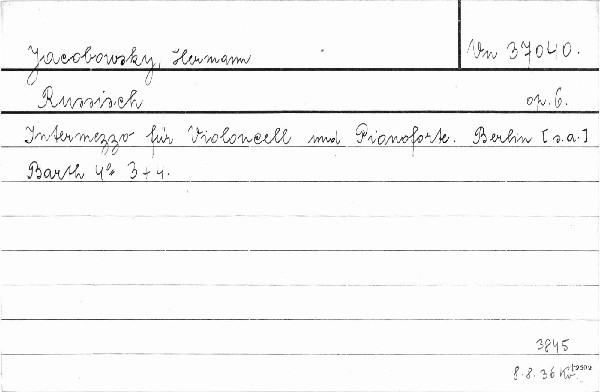 Jacobowsky, Hermann
Vn 37040.
Russisch op. 6.
Intermezzo für Violoncell und Pianoforte. Berlin [s.a.]
Barth 4° 3+4.
3845
8.8.36 Kö